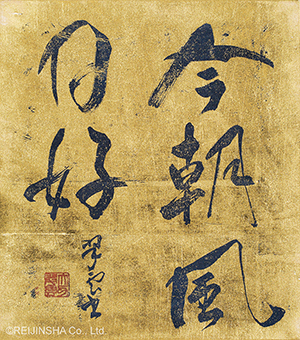 今朝風
日好
©REIJINSHA Co., Ltd.